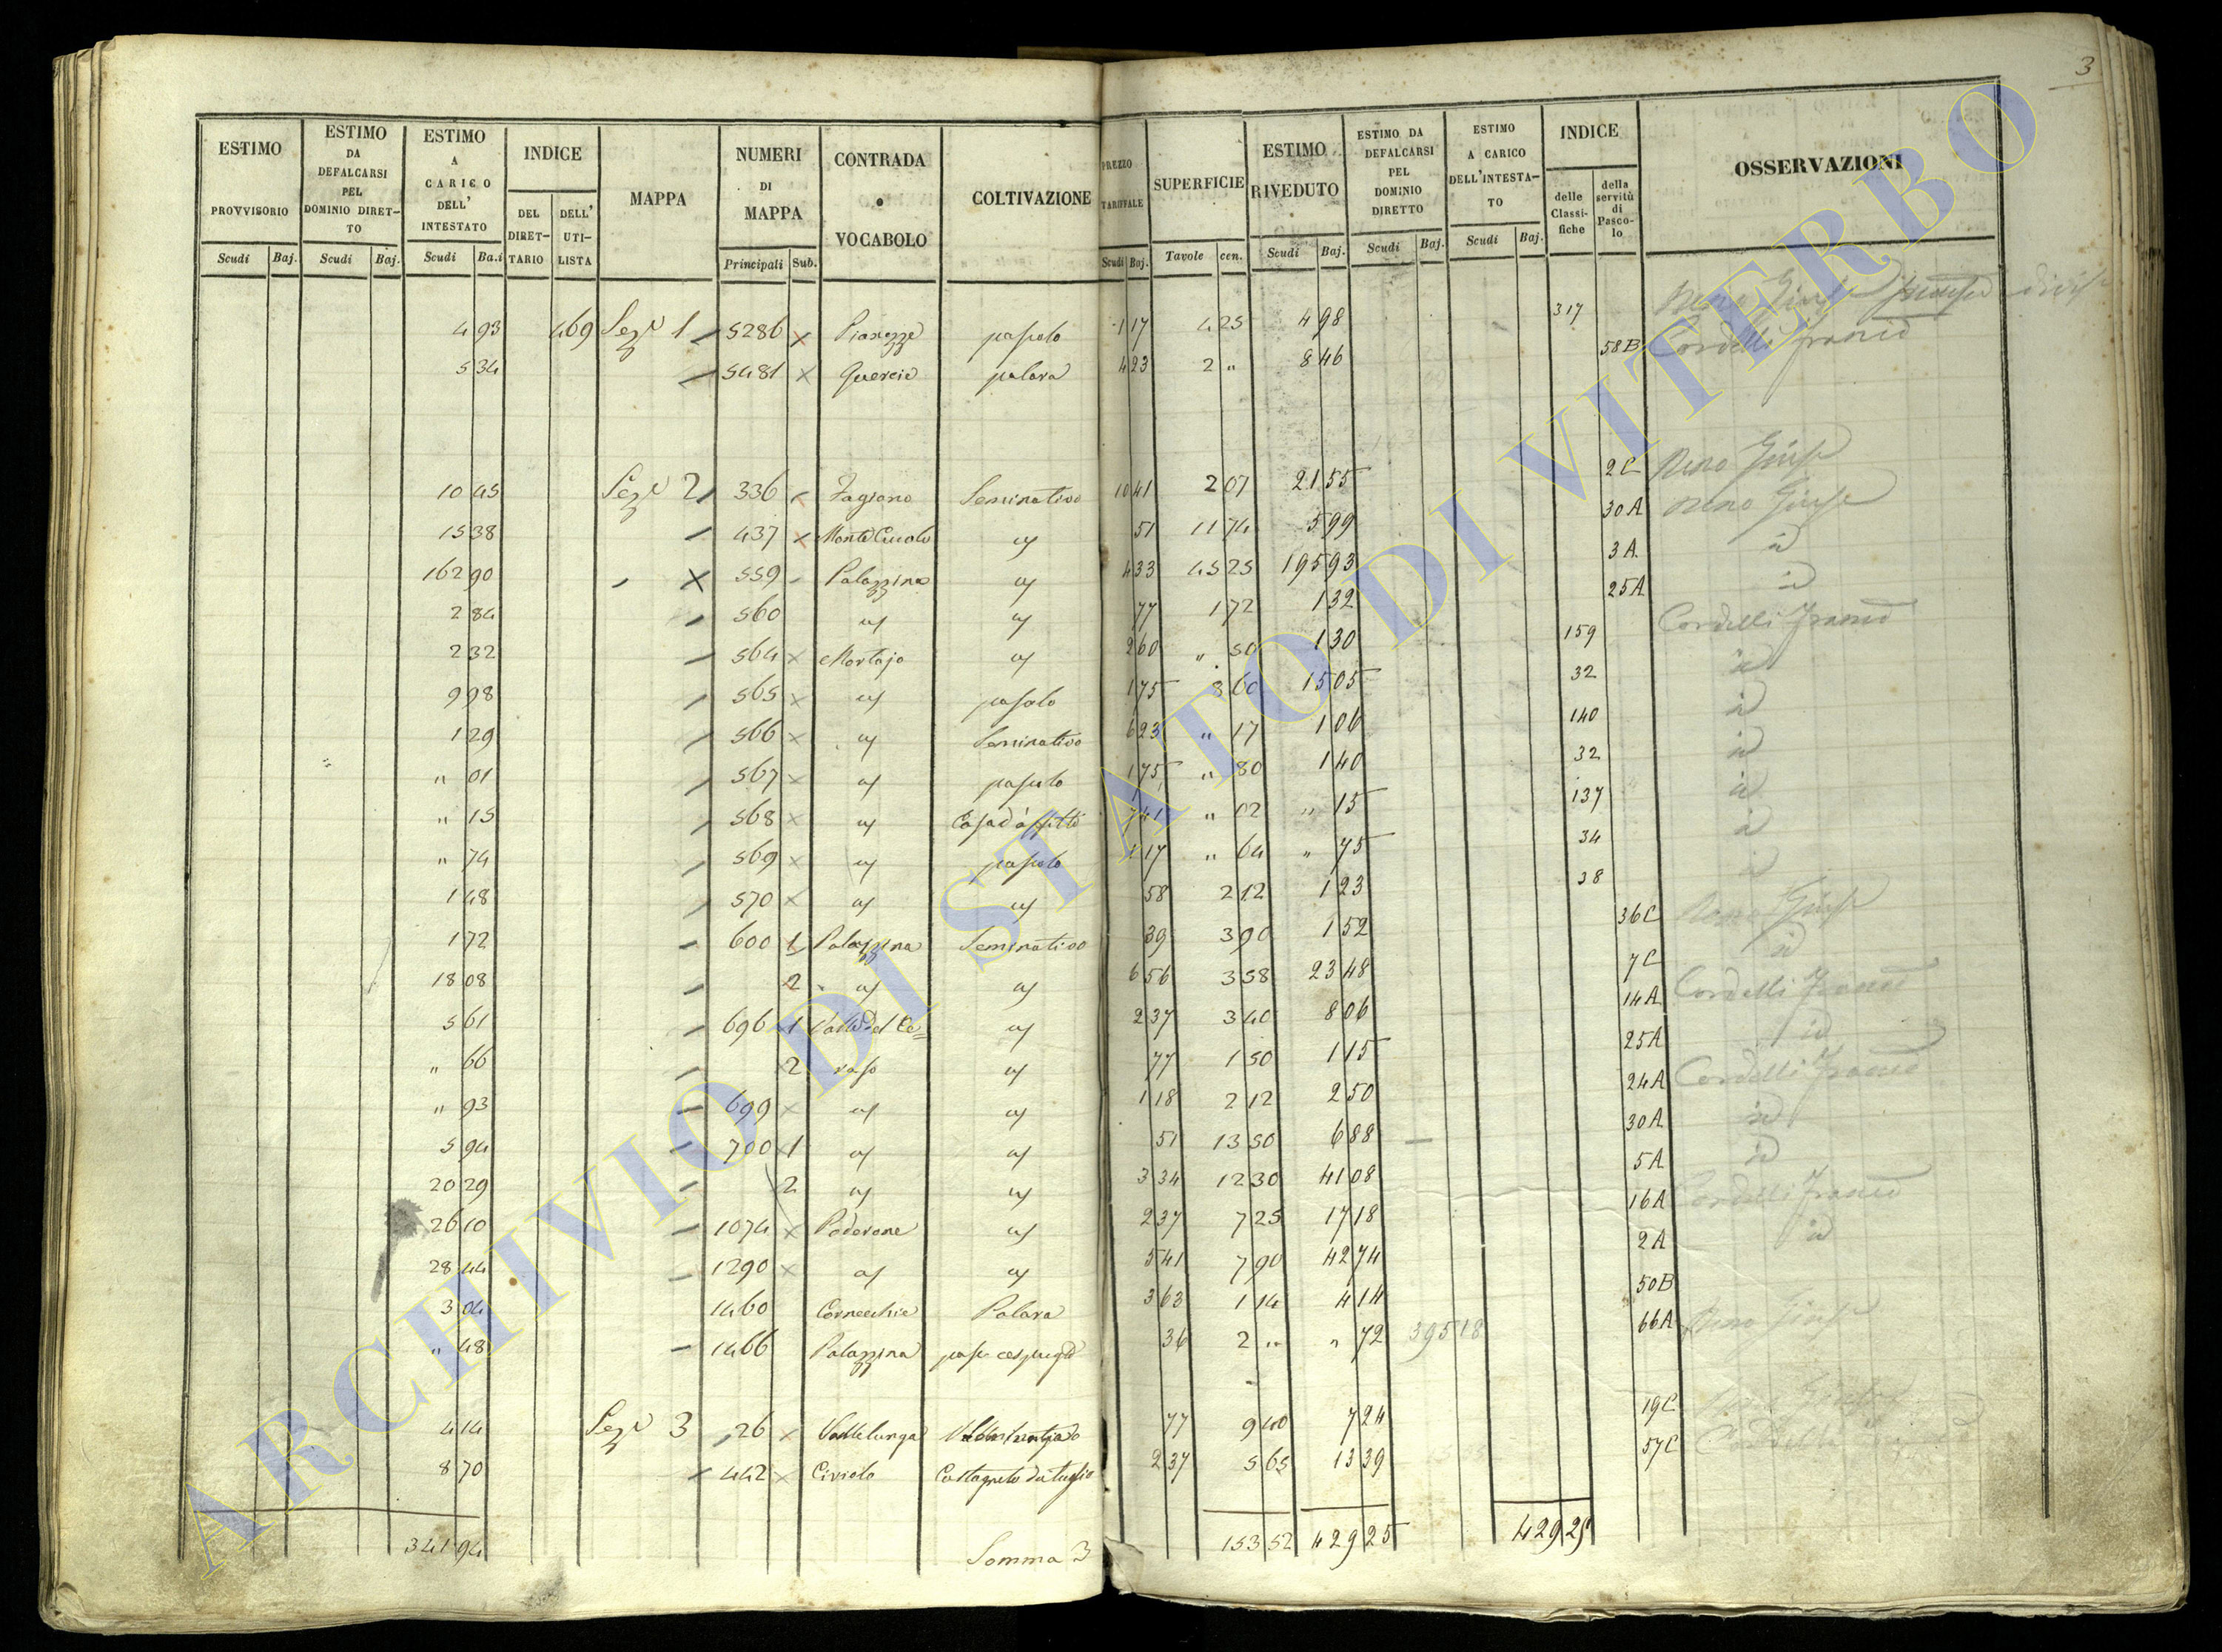 3
ESTIMO PROVVISORIO Scudi Baj.
ESTIMO DA DEFALCARSI PEL DOMINIO DIRETTO Scudi Baj.
ESTIMO A CARICO DELL' INTESTATO Scudi Ba.i
INDICE DEL DIRETTARIO DELL' UTILISTA
MAPPA
NUMERI DI MAPPA Principali Sub.
CONTRADA o VOCABOLO
COLTIVAZIONE
PREZZO TARIFFALE Scudi Baj.
SUPERFICIE Tavole cen.
ESTIMO RIVEDUTO Scudi Baj.
ESTIMO DA DEFALCARSI PEL DOMINIO DIRETTO Scudi Baj.
ESTIMO A CARICO DELL'INTESTATO Scudi Baj.
INDICE delle Classifiche della servitù di Pascolo
OSSERVAZIONI
4 93 469 Sez.e 1 5286 x Pianezze pascolo 1 17 4 25 4 98 317
5 34 5481 x Quercie palara 4 23 2 " 8 46 58B Cordelli Franco
10 45 Sez.e 2 336 x Fagiano Seminativo 10 41 2 07 21 55 2C Neno Giuse
15 38 437 x Monte Cucolo id 51 11 74 5 99 30A Neno Giuse
162 90 X 559 Palazzina id 4 33 45 25 195 93 3A id
2 84 560 id id 77 1 72 1 32 25A id
2 32 564 x Mortajo id 2 60 " 50 1 30 159 Cordelli Franco
9 98 565 x id pascolo 1 75 8 60 15 05 32 id
1 29 566 x id Seminativo 6 23 " 17 1 06 140 id
" 01 567 x id pascolo 1 75 " 80 1 40 32 id
" 15 568 x id Casa d'affitto 7 41 " 02 " 15 137 id
" 74 569 x id pascolo 1 17 " 64 " 75 34 id
1 48 570 x id id 58 2 12 1 23 38 id
1 72 600 1 Palazzina Seminativo 39 3 90 1 52 36C Neno Giuse
18 08 2 id id 6 56 3 58 23 48 7C id
5 61 696 1 Valle del Ce= id 2 37 3 40 8 06 14A Cordelli Franco
" 66 2 raso id 77 1 50 1 15 25A id
" 93 699 x id id 1 18 2 12 2 50 24A Cordelli Franco
5 94 700 1 id id 51 13 50 6 88 30A id
20 29 2 id id 3 34 12 30 41 08 5A id
26 10 1074 x Poderone id 2 37 7 25 17 18 16A Cordelli Franco
28 44 1290 x id id 5 41 7 90 42 74 2A id
3 04 1460 Cornecchie Palara 3 63 1 14 4 14 50B
" 48 1466 Palazzina pasc. cespugl. 36 2 " " 72 395 18 66A Neno Giuse
4 14 Sez.e 3 26 x Vallelunga 77 9 40 7 24 19C
8 70 442 x Civiolo Castagneto da taglio 2 37 5 65 13 39 57C Cordelli
341 94 Somma 3 153 52 429 25 429 25
ARCHIVIO DI STATO DI VITERBO